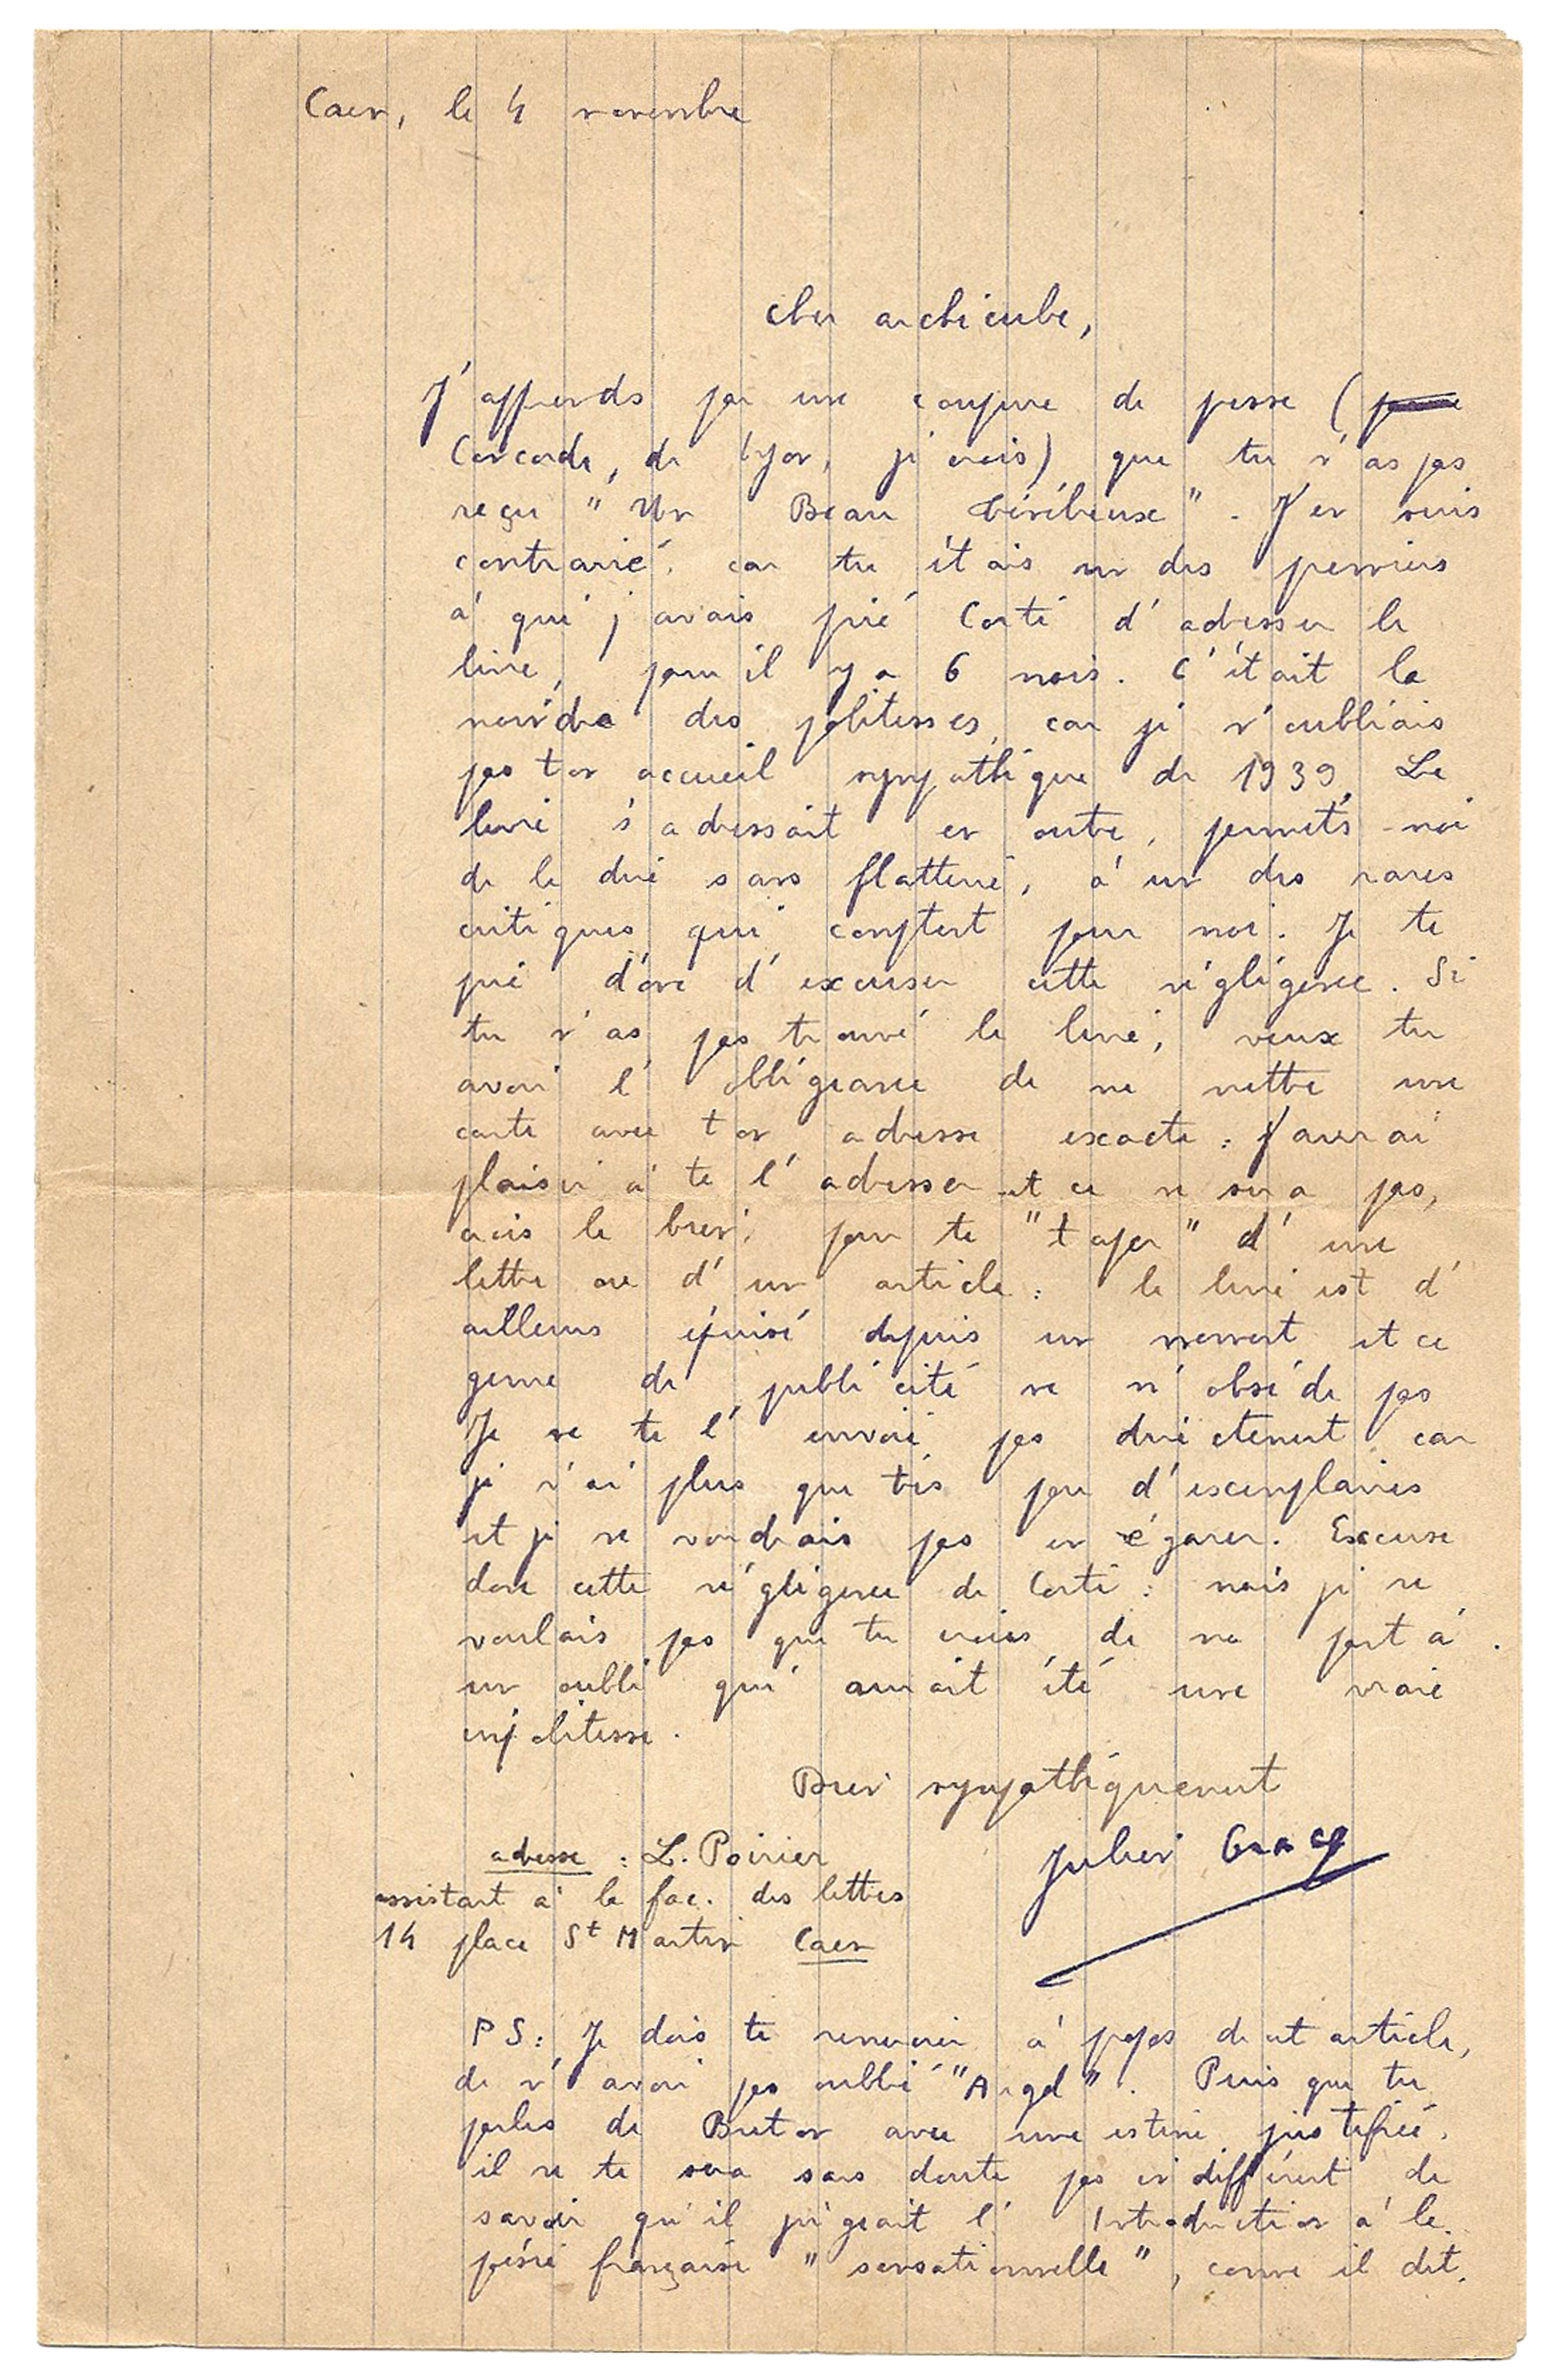 Caen, le 4 novembre
Cher archicube,
J'apprends par une coupure de presse (
Concorde, de Lyon, je crois) que tu n'as pas
reçu "Un Beau Ténébreux". J'en suis
contrarié, car tu étais un des premiers
à qui j'avais prié Corti d'adresser le
livre, il y a 6 mois. C'était la
moindre des politesses, car je n'oubliais
pas ton accueil sympathique de 1939. Le
livre s'adressait en outre, permets-moi
de le dire sans flatterie, à un des rares
critiques qui comptent pour moi. Je te
prie donc d'excuser cette négligence. Si
tu n'as pas trouvé le livre, veux tu
avoir l'obligeance de me mettre une
carte avec ton adresse exacte : j'aurai
plaisir à te l'adresser et ce ne sera pas,
crois le bien, pour te "taper" d'une
lettre ou d'un article : le livre est d'
ailleurs épuisé depuis un moment et ce
genre de publicité ne m'obsède pas
Je ne te l'envoie pas directement car
je n'ai plus que très peu d'exemplaires
et je ne voudrais pas en égarer. Excuse
donc cette négligence de Corti : mais je ne
voulais pas que tu croies de ma part à
un oubli qui aurait été une vraie
impolitesse.
Bien sympathiquement
Julien Gracq
adresse : L. Poirier
assistant à la fac. des lettres
14 place St Martin Caen
PS : Je dois te remercier à propos de cet article,
de n'avoir pas oublié "Argol". Puis que tu
parles de Breton avec une estime justifiée,
il ne te sera sans doute pas indifférent de
savoir qu'il jugeait l'Introduction à la
poésie française "sensationnelle", comme il dit.